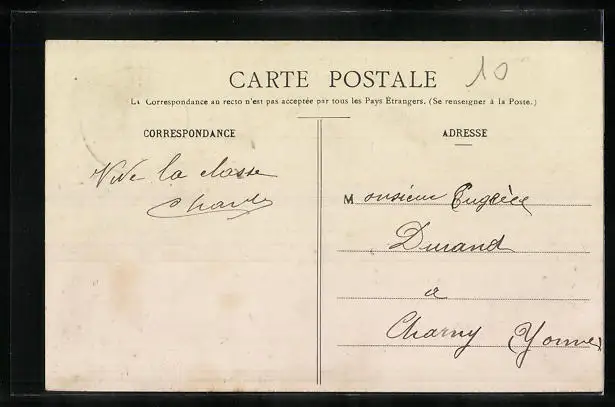 10
CARTE POSTALE
La Correspondance au recto n'est pas acceptée par tous les Pays Étrangers. (Se renseigner à la Poste.)
CORRESPONDANCE
ADRESSE
Vive la classe
Charles
Monsieur Eugène
Durand
a
Charny Yonne